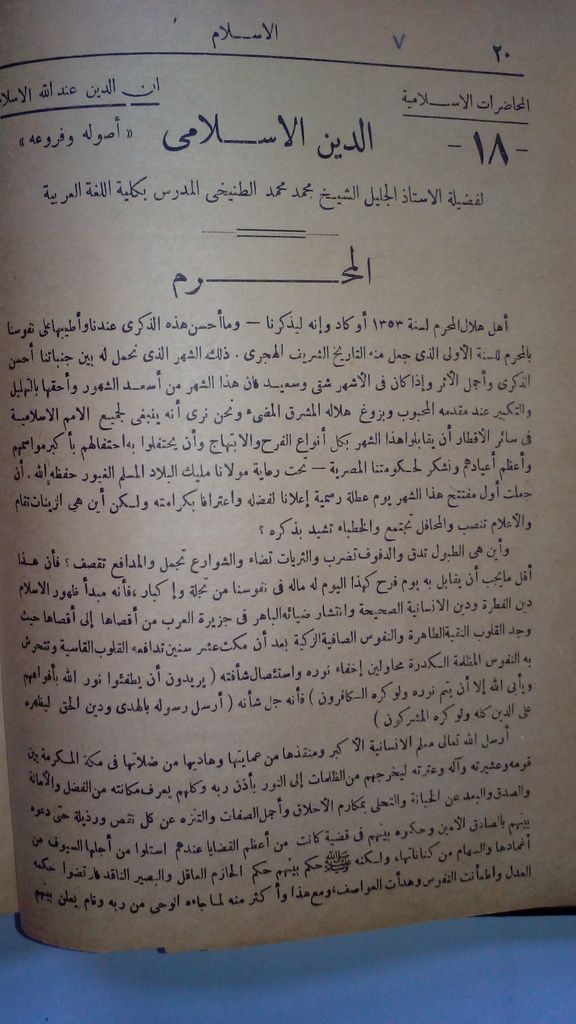 ٢٠ ٧ الاســلام
المحاضرات الاســلامية ان الدين عند الله الاسلا
- ١٨ - الدين الاســلامى « أصوله وفروعه »
لفضيلة الاستاذ الجليل الشيخ محمد محمد الطنيخى المدرس بكلية اللغة العربية
المحــرم
أهل هلال المحرم لسنة ١٣٥٣ أو كاد وإنه ليذكرنا — وما أحسن هذه الذكرى عندنا وأطيبها على نفوسنا
بالمحرم للسنة الاولى الذى جعل منه التاريخ الشريف الهجرى . ذلك الشهر الذى نحمل له بين جنباتنا أحسن
الذكرى وأجمل الأثر وإذا كان فى الاشهر شتى وسعيد فان هذا الشهر من أسعد الشهور وأحقها بالتهليل
والتكبير عند مقدمه المحبوب وبزوغ هلاله المشرق المضىء ونحن نرى أنه ينبغى لجميع الامم الاسلامية
فى سائر الأقطار أن يقابلوا هذا الشهر بكل أنواع الفرح والابتهاج وأن يحتفلوا به احتفالهم بأكبر مواسمهم
وأعظم أعيادهم ونشكر لحكومتنا المصرية — تحت رعاية مولانا مليك البلاد المسلم الغيور حفظه الله . أن
جعلت أول مفتتح هذا الشهر يوم عطلة رسمية إعلانا لفضله واعترافا بكرامته ولكن أين هى الزينات تقام
والاعلام تنصب والمحافل تجتمع والخطباء تشيد بذكره ؟
وأين هى الطبول تدق والدفوف تضرب والثريات تضاء والشوارع تجمل والمدافع تقصف ؟ فأن هذا
أقل ما يجب أن يقابل به يوم فرح كهذا اليوم له ماله فى نفوسنا من تجلة وإكبار ، فأنه مبدأ ظهور الاسلام
دين الفطرة ودين الانسانية الصحيحة وانتشار ضيائه الباهر فى جزيرة العرب من أقصاها إلى أقصاها حيث
وجد القلوب النقية الطاهرة والنفوس الصافية الزكية بعد أن مكث عشر سنين تدافعه القلوب القاسية وتتحرش
به النفوس المظلمة الكدرة محاولين إخفاء نوره واستئصال شأفته ( يريدون أن يطفئوا نور الله بأفواههم
ويأبى الله إلا أن يتم نوره ولو كره الكافرون ) فأنه جل شأنه ( أرسل رسوله بالهدى ودين الحق ليظهره
على الدين كله ولو كره المشركون )
أرسل الله تعالى معلم الانسانية الأكبر ومنقذها من عمايتها وهاديها من ضلالتها فى مكة المكرمة بين
قومه وعشيرته وآله وعترته ليخرجهم من الظلمات إلى النور بأذن ربه وكلهم يعرف مكانته من الفضل والأمانة
والصدق والبعد عن الخيانة والتحلى بمكارم الأخلاق وأجمل الصفات والتنزه عن كل نقص ورذيلة حتى دعوه
بينهم بالصادق الأمين وحكموه بينهم فى قضية كانت من أعظم القضايا عندهم استلوا من أجلها السيوف من
أغمادها والسهام من كناناتها، ولكنه ﷺ حكم بينهم حكم الحازم العاقل والبصير الناقد فارتضوا حكمه
العدل واطمأنت النفوس وهدأت العواصف، ومع هذا وأكثر منه لما جاءه الوحى من ربه وقام يعلن بينهم